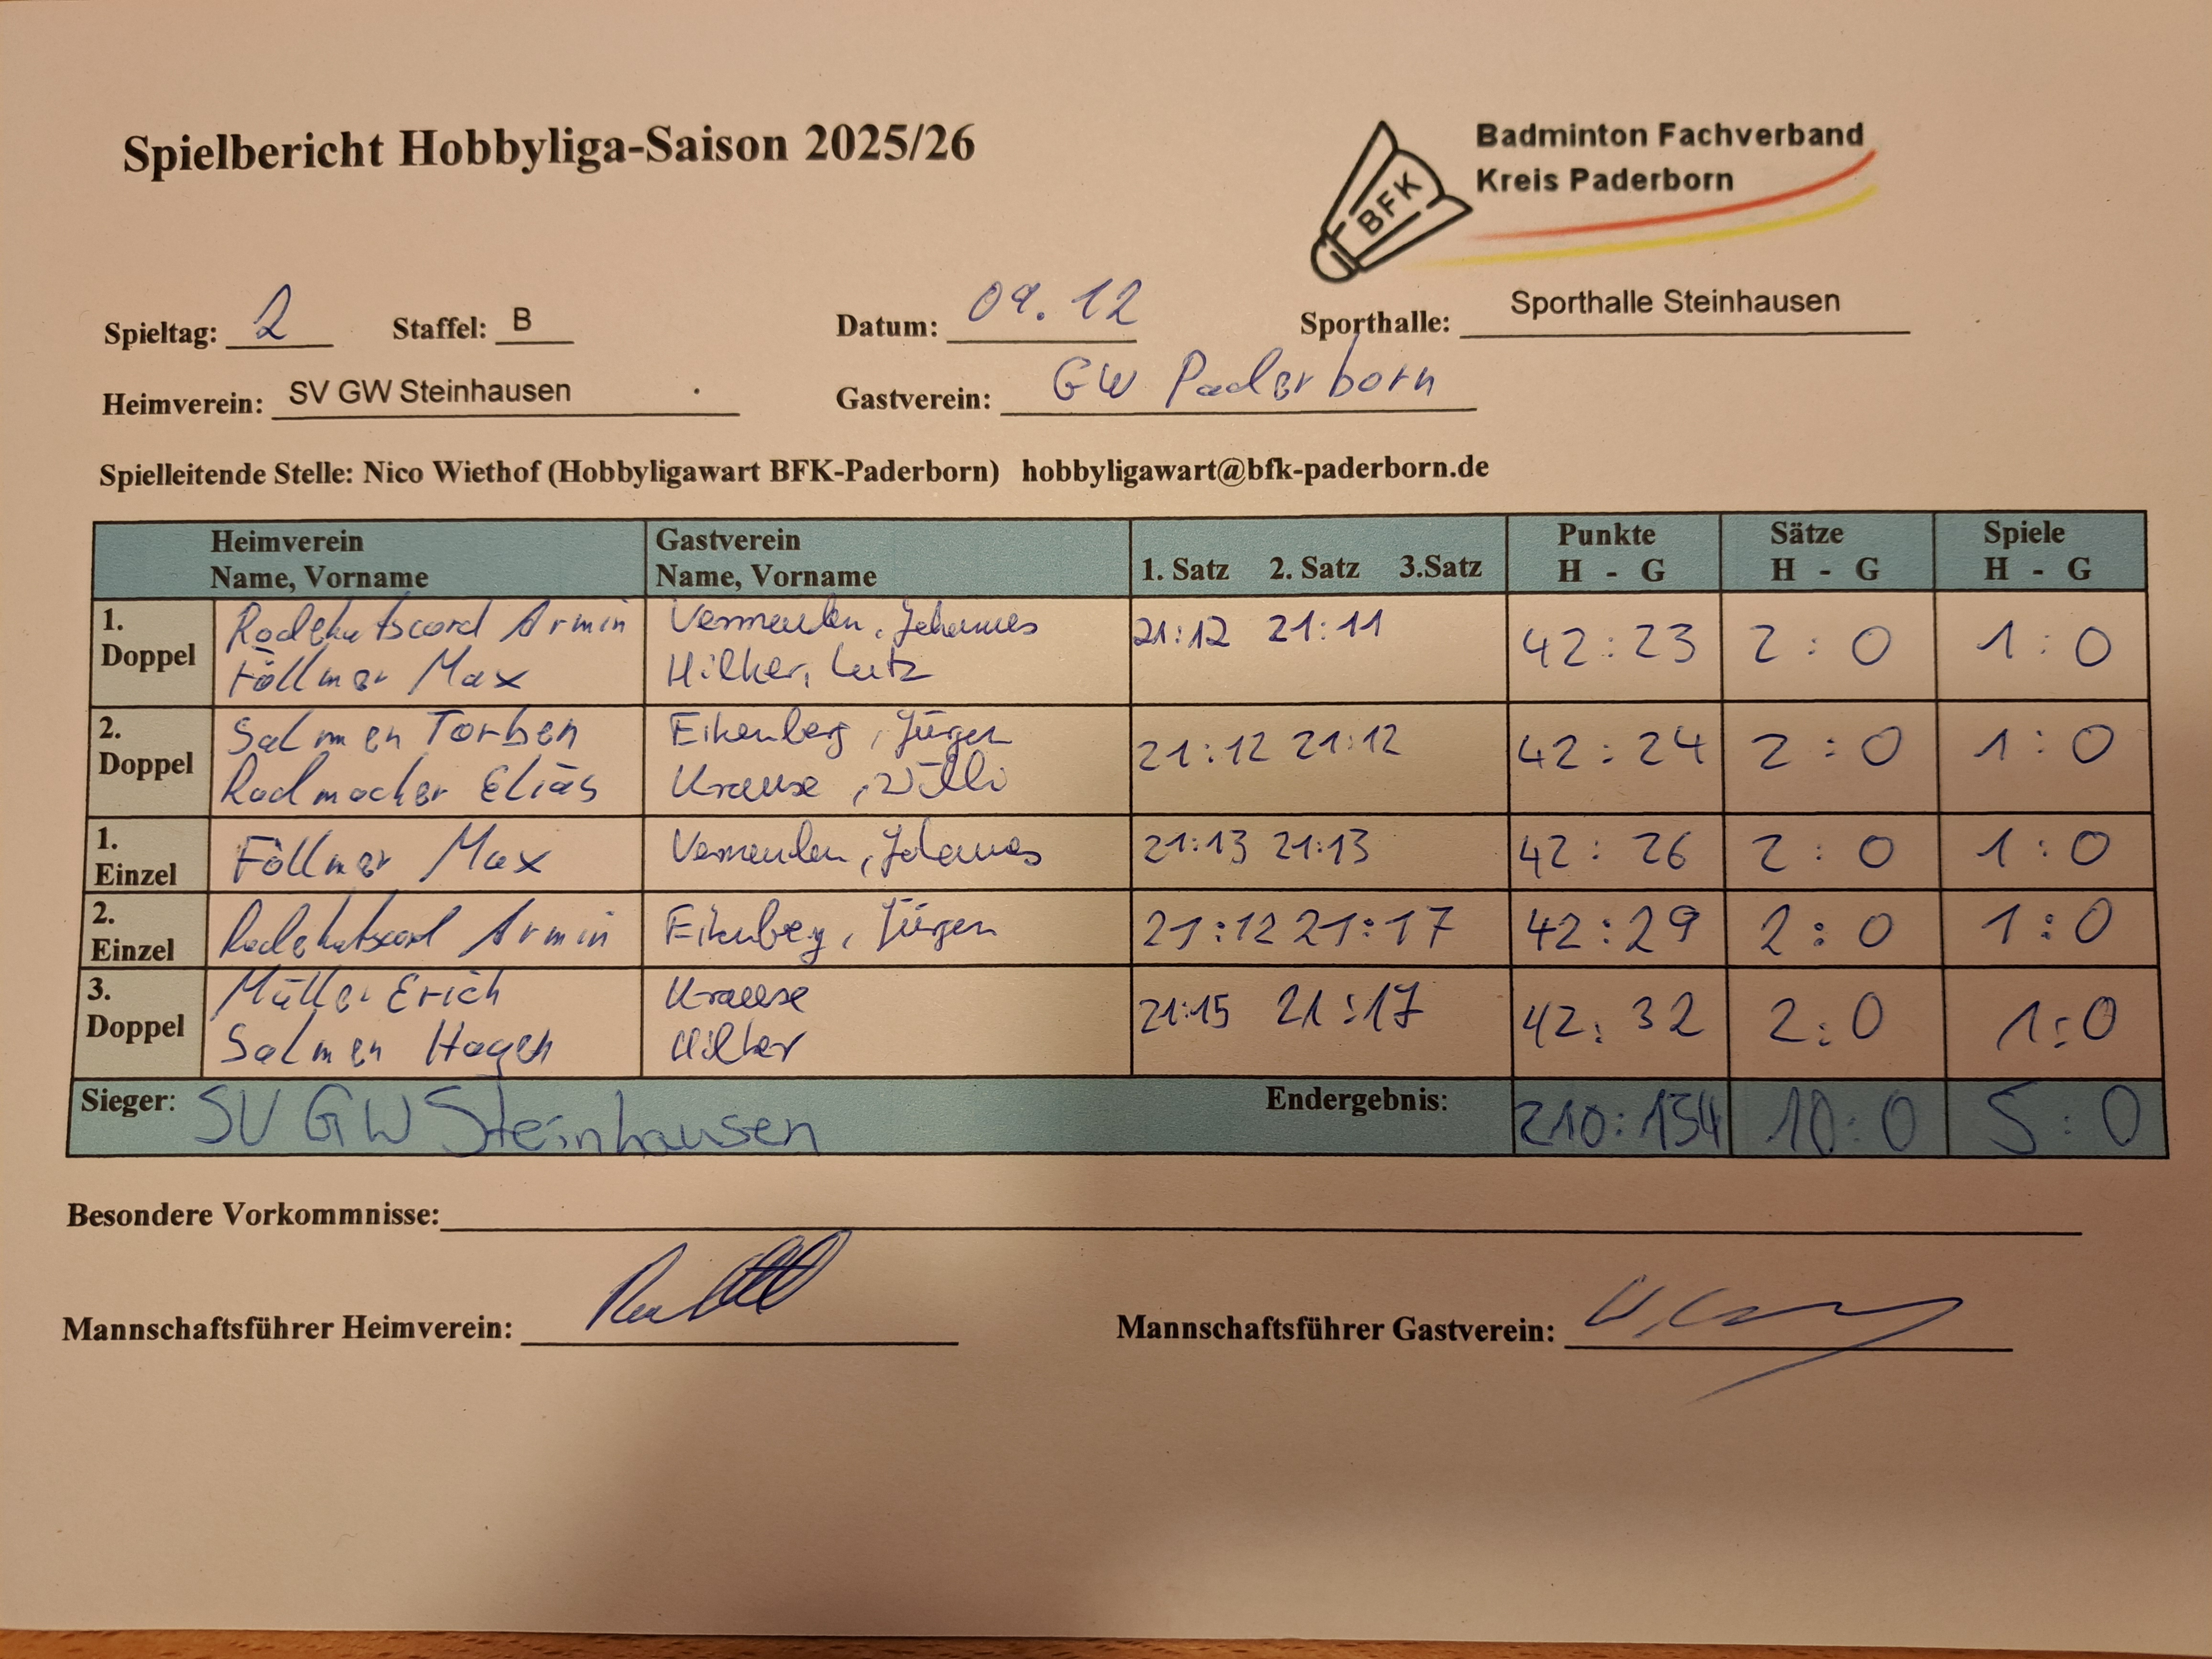 Spielbericht Hobbyliga-Saison 2025/26
BFK
Badminton Fachverband
Kreis Paderborn
Spieltag: 2 Staffel: B Datum: 09.12 Sporthalle: Sporthalle Steinhausen
Heimverein: SV GW Steinhausen Gastverein: GW Paderborn
Spielleitende Stelle: Nico Wiethof (Hobbyligawart BFK-Paderborn) hobbyligawart@bfk-paderborn.de
Heimverein Gastverein Punkte Sätze Spiele
Name, Vorname Name, Vorname 1. Satz 2. Satz 3.Satz H - G H - G H - G
1. Doppel
Armin
Hilker, Lutz
Föllmer Max
21:12 21:11 42:23 2:0 1:0
2. Doppel
Salmen Torben Eikenberg, Jürgen
Radmacher Elias Krause, Willi
21:12 21:12 42:24 2:0 1:0
1. Einzel
Föllmer Max
21:13 21:13 42:26 2:0 1:0
2. Einzel
Armin Eikenberg, Jürgen
21:12 21:17 42:29 2:0 1:0
3. Doppel
Müller Erich Krause
Salmen Hagen Hilker
21:15 21:17 42:32 2:0 1:0
Sieger: SV GW Steinhausen Endergebnis: 210:134 10:0 5:0
Besondere Vorkommnisse:
Mannschaftsführer Heimverein: Mannschaftsführer Gastverein: